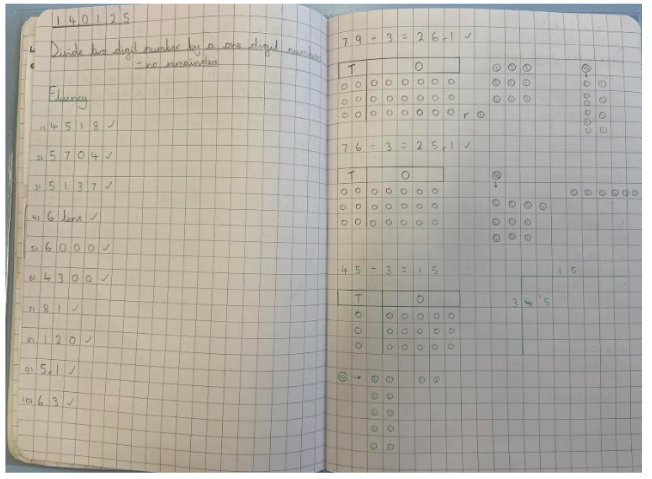 140125
Divide two digit number by a one digit number
- no remainder
Fluency
1) 4518 ✓
2) 5704 ✓
3) 5137 ✓
4) 6 tens ✓
5) 6000 ✓
6) 4300 ✓
7) 81 ✓
8) 120 ✓
9) 5r1 ✓
10) 63 ✓
79 ÷ 3 = 26r1 ✓
T O
r
76 ÷ 3 = 25r1 ✓
T O
45 ÷ 3 = 15
T O
15
3 4 15